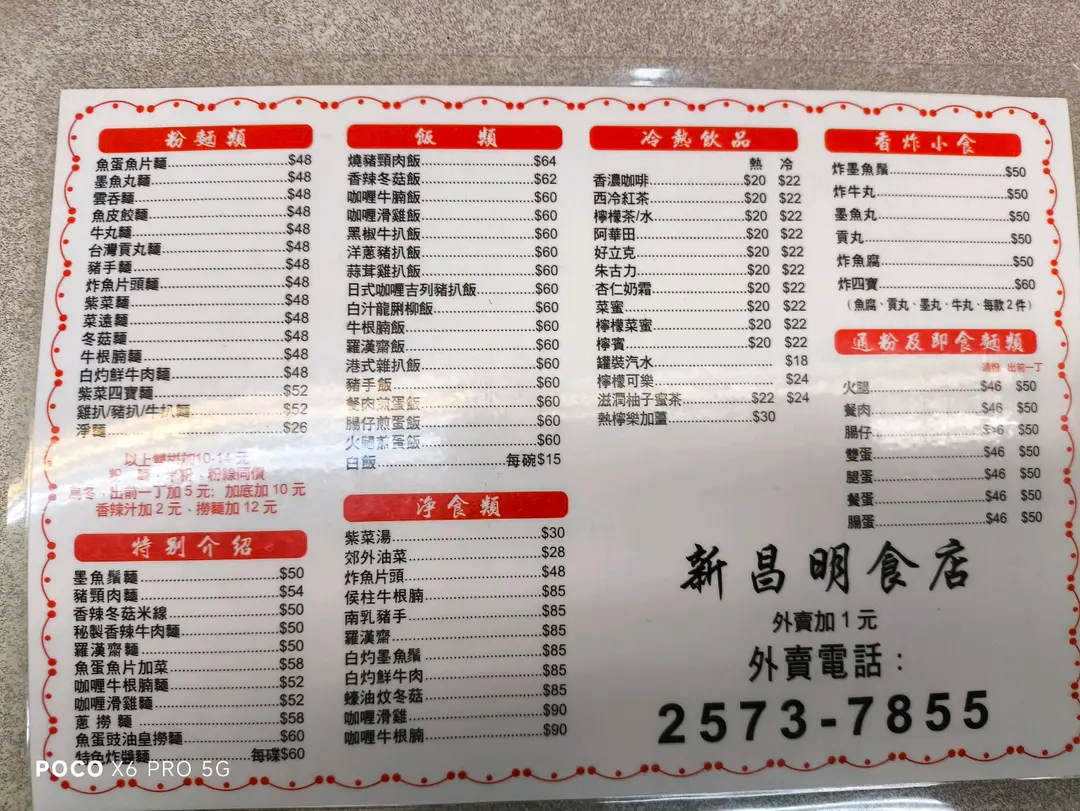 粉麵類
魚蛋魚片麵 $48
墨魚丸麵 $48
雲吞麵 $48
魚皮餃麵 $48
牛丸麵 $48
台灣貢丸麵 $48
豬手麵 $48
炸魚片頭麵 $48
紫菜麵 $48
菜遠麵 $48
冬菇麵 $48
牛根腩麵 $48
白灼鮮牛肉麵 $48
紫菜四寶麵 $52
雞扒/豬扒/牛扒麵 $52
淨麵 $26
以上 加10-14元
粉線同價
烏冬、出前一丁加5元; 加底加10元
香辣汁加2元、撈麵加12元
特別介紹
墨魚鬚麵 $50
豬頸肉麵 $54
香辣冬菇米線 $50
秘製香辣牛肉麵 $50
羅漢齋麵 $50
魚蛋魚片加菜 $58
咖喱牛根腩麵 $52
咖喱滑雞麵 $52
蔥撈麵 $58
魚蛋豉油皇撈麵 $60
特色炸醬麵 每碟$60
飯類
燒豬頸肉飯 $64
香辣冬菇飯 $62
咖喱牛腩飯 $60
咖喱滑雞飯 $60
黑椒牛扒飯 $60
洋蔥豬扒飯 $60
蒜茸雞扒飯 $60
日式咖喱吉列豬扒飯 $60
白汁龍脷柳飯 $60
牛根腩飯 $60
羅漢齋飯 $60
港式雜扒飯 $60
豬手飯 $60
餐肉煎蛋飯 $60
腸仔煎蛋飯 $60
火腿煎蛋飯 $60
白飯 每碗$15
淨食類
紫菜湯 $30
郊外油菜 $28
炸魚片頭 $48
侯柱牛根腩 $85
南乳豬手 $85
羅漢齋 $85
白灼墨魚鬚 $85
白灼鮮牛肉 $85
蠔油炆冬菇 $85
咖喱滑雞 $90
咖喱牛根腩 $90
冷熱飲品
熱 冷
香濃咖啡 $20 $22
西冷紅茶 $20 $22
檸檬茶/水 $20 $22
阿華田 $20 $22
好立克 $20 $22
朱古力 $20 $22
杏仁奶霜 $20 $22
菜蜜 $20 $22
檸檬菜蜜 $20 $22
檸賓 $20 $22
罐裝汽水 $18
檸檬可樂 $24
滋潤柚子蜜茶 $22 $24
熱檸樂加薑 $30
香炸小食
炸墨魚鬚 $50
炸牛丸 $50
墨魚丸 $50
貢丸 $50
炸魚腐 $50
炸四寶 $60
（魚腐、貢丸、墨丸、牛丸、每款2件）
通粉及即食麵類
通粉 出前一丁
火腿 $46 $50
餐肉 $46 $50
腸仔 $46 $50
雙蛋 $46 $50
腿蛋 $46 $50
餐蛋 $46 $50
腸蛋 $46 $50
新昌明食店
外賣加1元
外賣電話：
2573-7855
POCO X6 PRO 5G